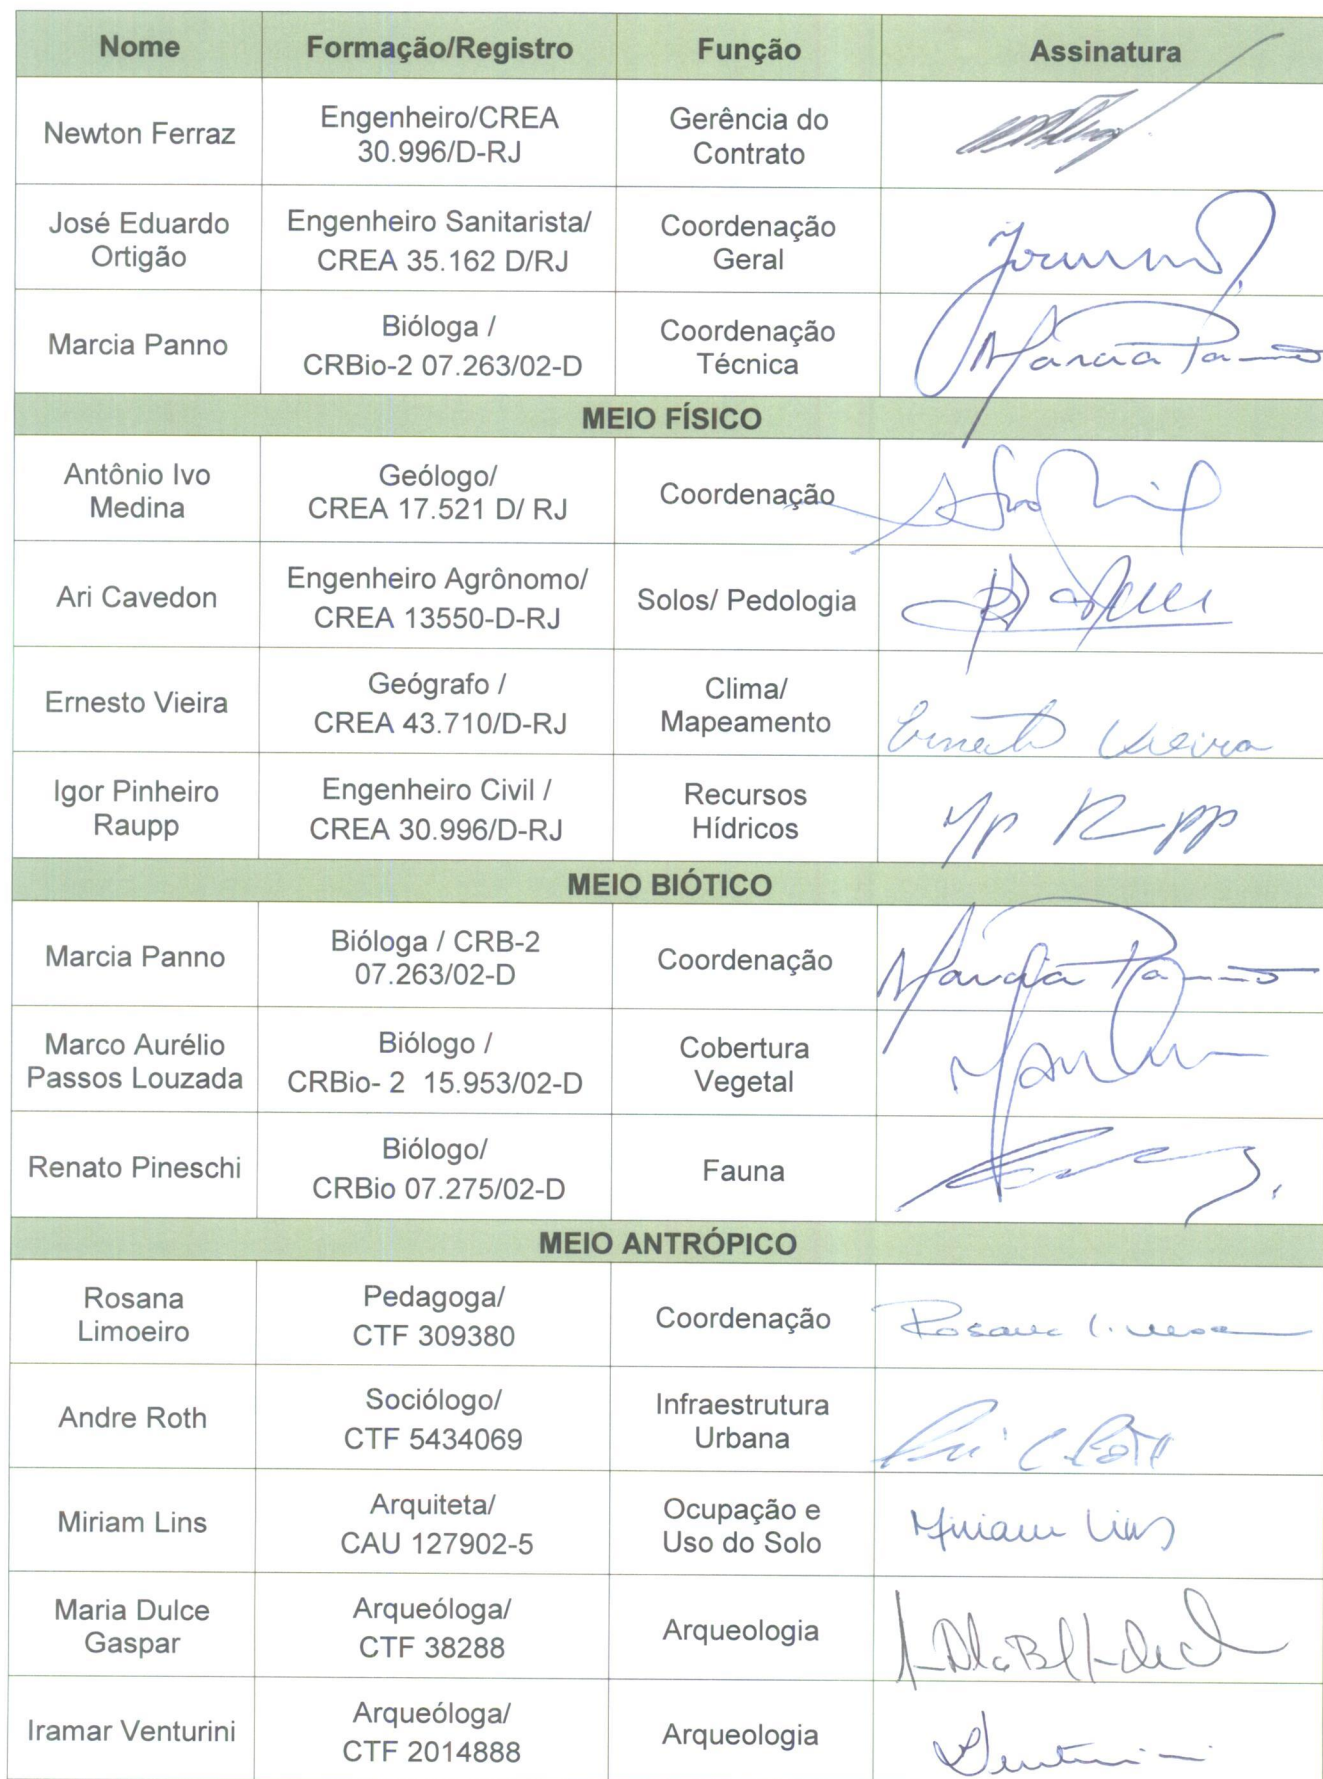 Nome Formação/Registro Função Assinatura
Newton Ferraz
Engenheiro/CREA
30.996/D-RJ
Gerência do
Contrato
José Eduardo
Ortigão
Engenheiro Sanitarista/
CREA 35.162 D/RJ
Coordenação
Geral
Marcia Panno
Bióloga /
CRBio-2 07.263/02-D
Coordenação
Técnica
Marcia Panno
MEIO FÍSICO
Antônio Ivo
Medina
Geólogo/
CREA 17.521 D/ RJ
Coordenação
Ari Cavedon
Engenheiro Agrônomo/
CREA 13550-D-RJ
Solos/ Pedologia
Ernesto Vieira
Geógrafo /
CREA 43.710/D-RJ
Clima/
Mapeamento
Ernesto Vieira
Igor Pinheiro
Raupp
Engenheiro Civil /
CREA 30.996/D-RJ
Recursos
Hídricos
MEIO BIÓTICO
Marcia Panno
Bióloga / CRB-2
07.263/02-D
Coordenação
Marcia Panno
Marco Aurélio
Passos Louzada
Biólogo /
CRBio- 2 15.953/02-D
Cobertura
Vegetal
Renato Pineschi
Biólogo/
CRBio 07.275/02-D
Fauna
MEIO ANTRÓPICO
Rosana
Limoeiro
Pedagoga/
CTF 309380
Coordenação
Rosana Limoeiro
Andre Roth
Sociólogo/
CTF 5434069
Infraestrutura
Urbana
Miriam Lins
Arquiteta/
CAU 127902-5
Ocupação e
Uso do Solo
Miriam Lins
Maria Dulce
Gaspar
Arqueóloga/
CTF 38288
Arqueologia
Iramar Venturini
Arqueóloga/
CTF 2014888
Arqueologia